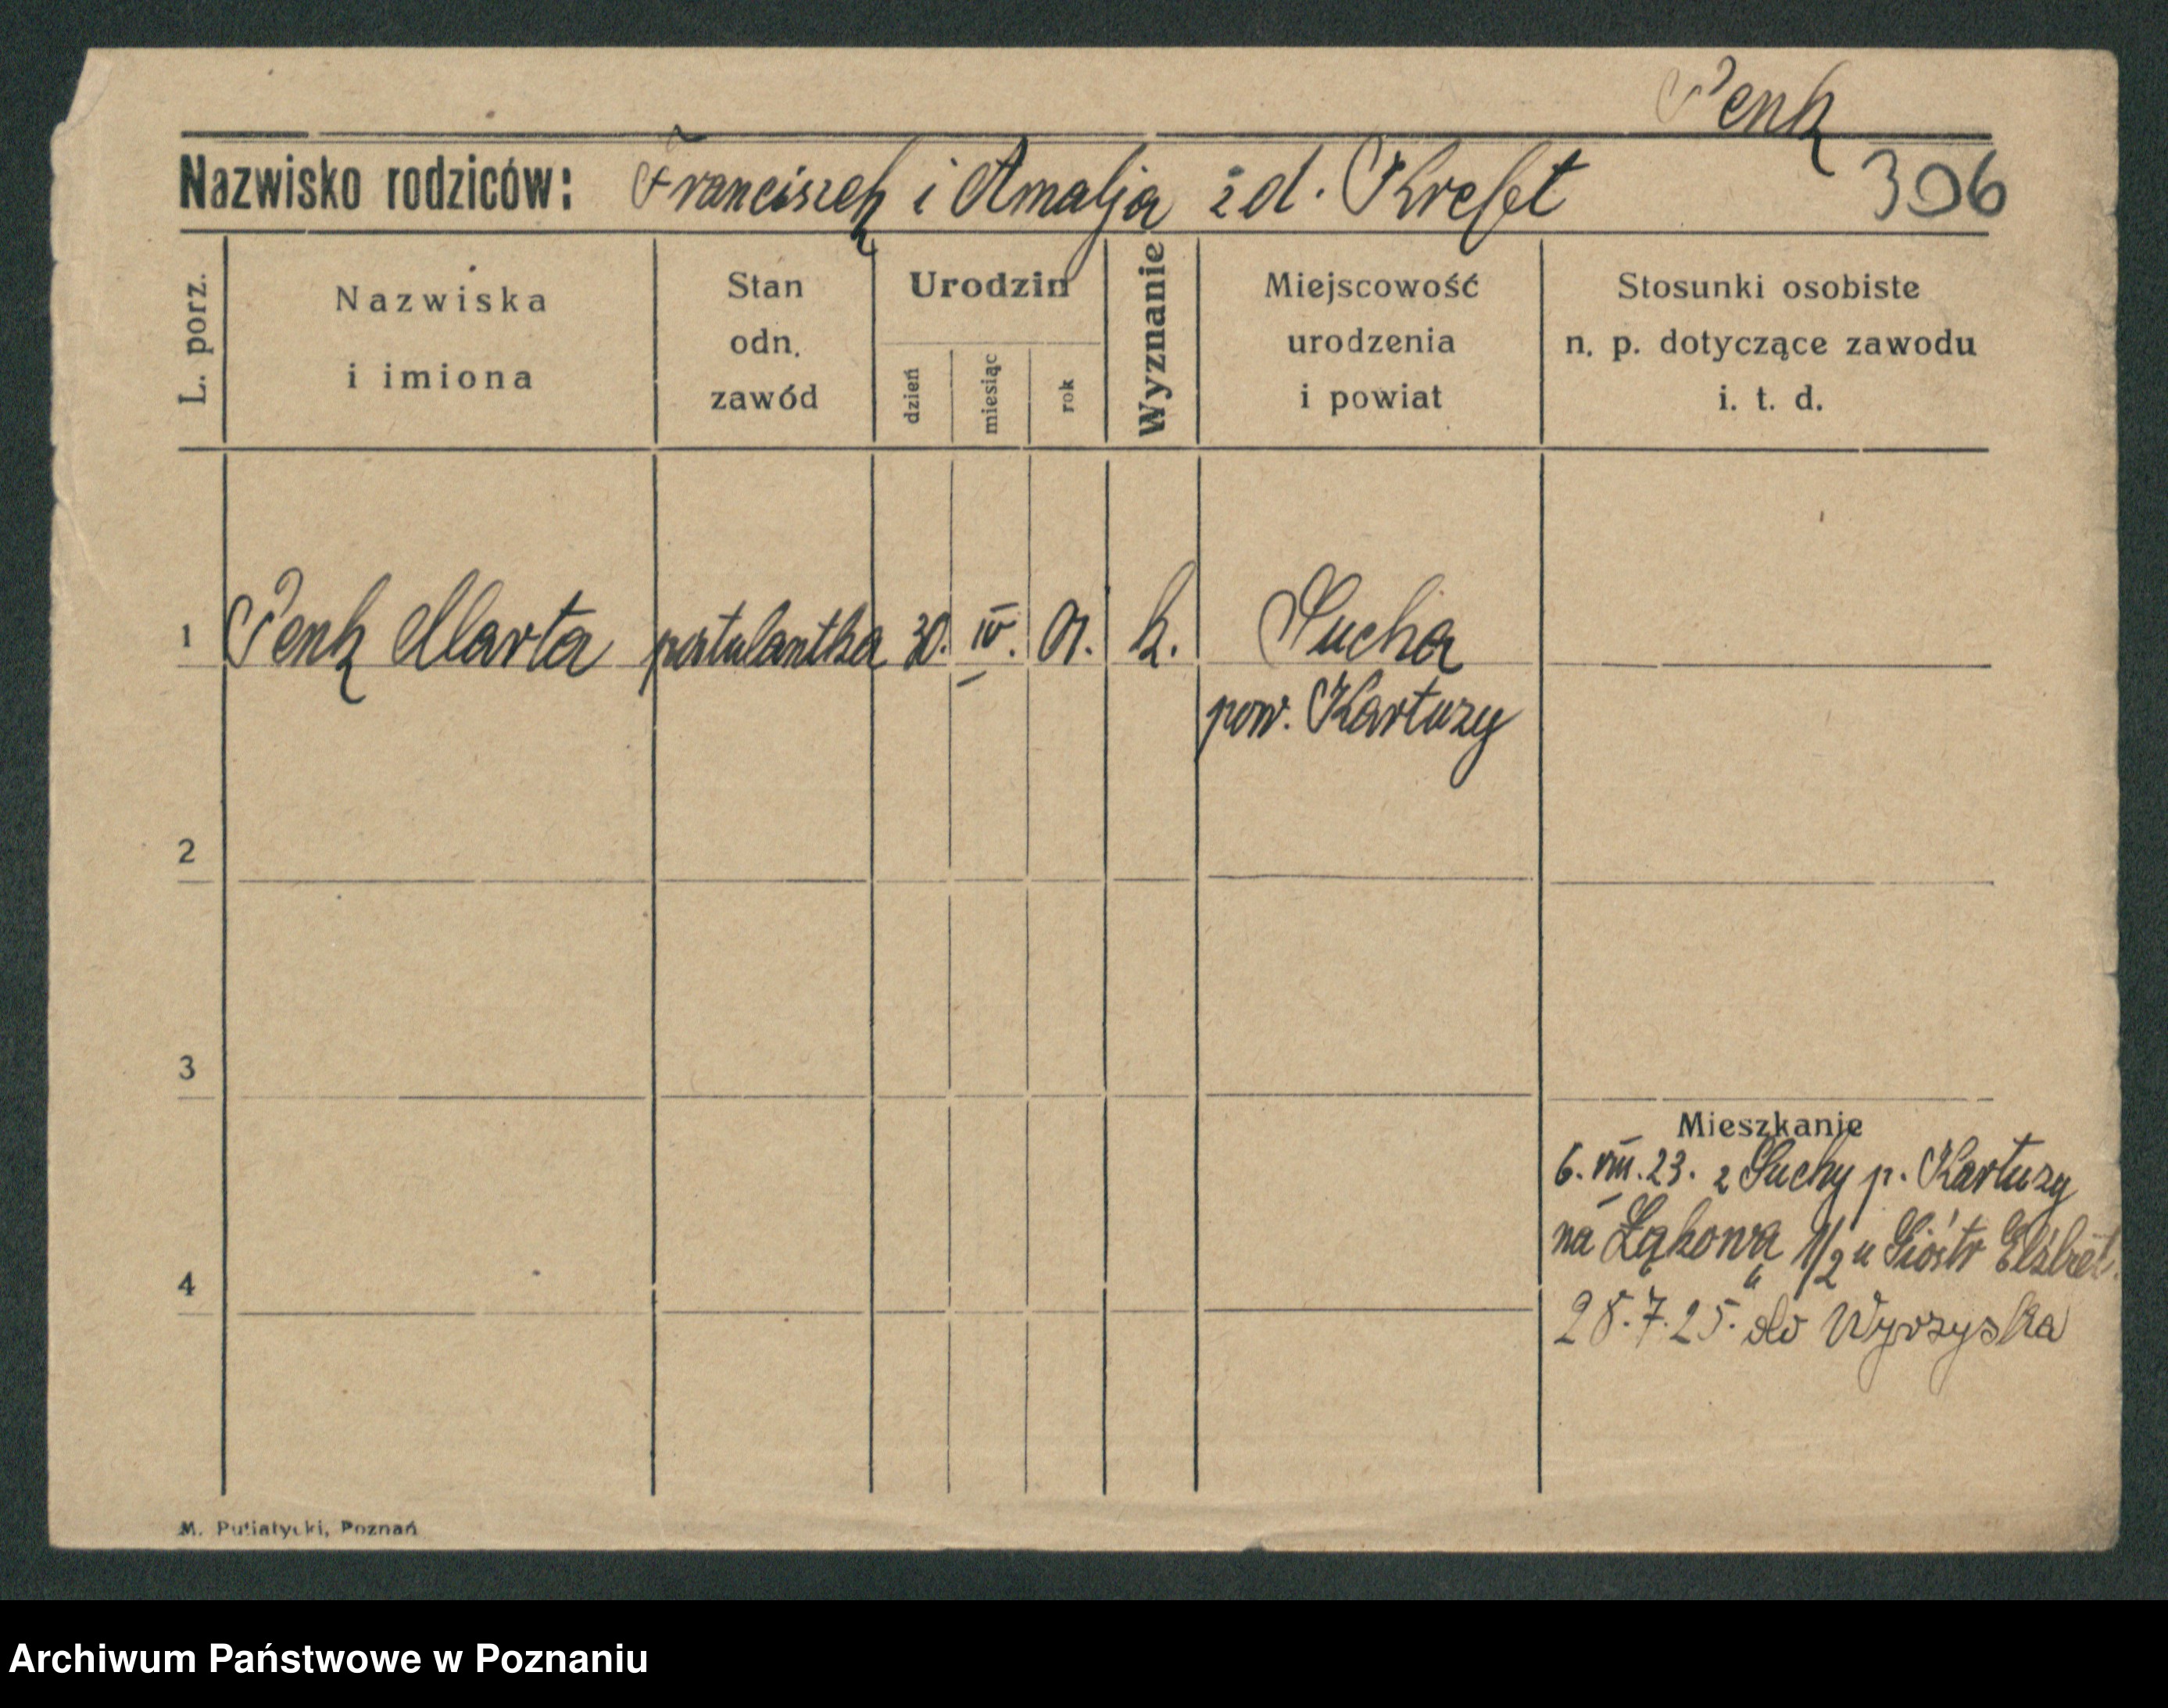 Penk
Nazwisko rodziców: Franciszek i Amalja zd. Kreft
306
L. porz.
Nazwiska
i imiona
Stan
odn.
zawód
Urodzin
dzień
miesiąc
rok
Wyznanie
Miejscowość
urodzenia
i powiat
Stosunki osobiste
n. p. dotyczące zawodu
i. t. d.
1 Penk Marta postulantka 30. IV. 01. k. Sucha
pow. Kartuzy
2
3
Mieszkanie
6. VIII. 23. z Suchy p. Kartuzy
na Łąkową 1/2 u Sióstr Elżbet.
4
28.7.25. do Wyrzyska
M. Putiatycki, Poznań
Archiwum Państwowe w Poznaniu